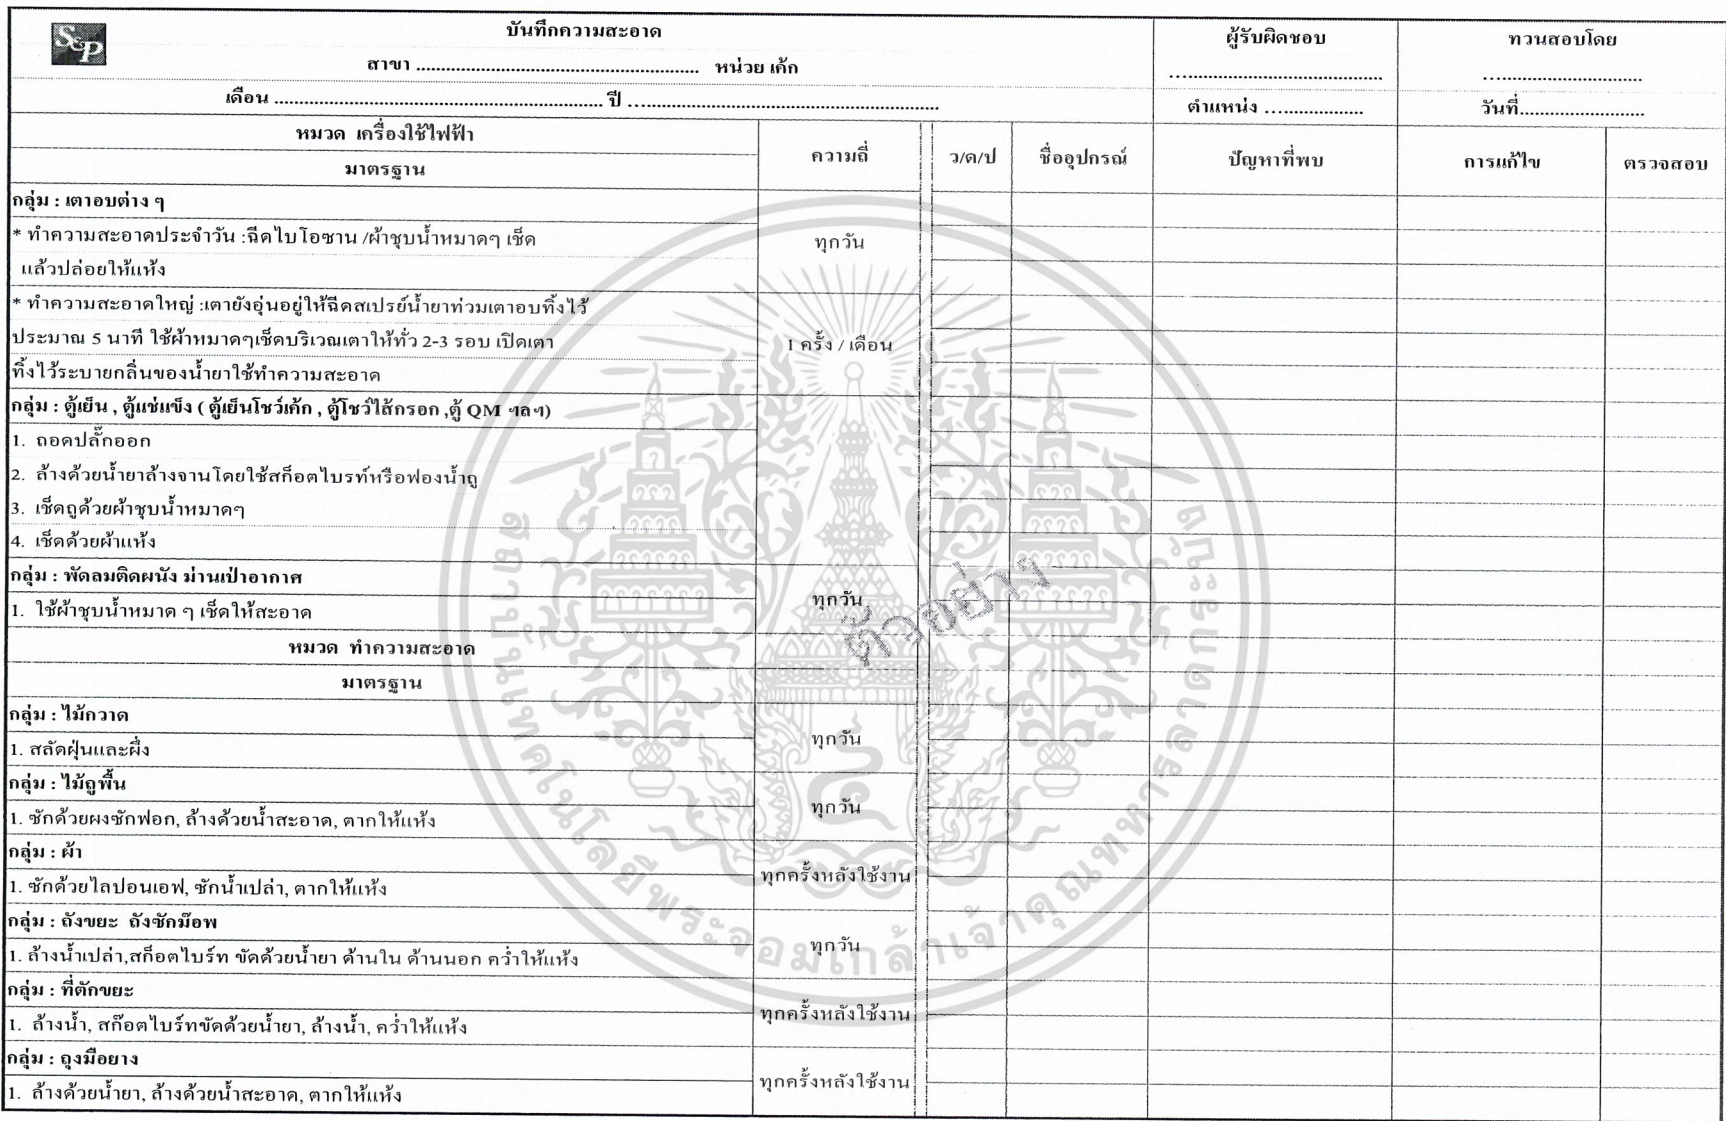 S&P
บันทึกความสะอาด
สาขา ........................................................ หน่วย เค้ก
เดือน ................................................................. ปี ................................................................
ผู้รับผิดชอบ
..........................................
ตำแหน่ง ....................
ทวนสอบโดย
................................
วันที่.........................
หมวด เครื่องใช้ไฟฟ้า
มาตรฐาน
ความถี่
ว/ด/ป
ชื่ออุปกรณ์
ปัญหาที่พบ
การแก้ไข
ตรวจสอบ
กลุ่ม : เตาอบต่าง ๆ
* ทำความสะอาดประจำวัน :ฉีดไบโอซาน /ผ้าชุบน้ำหมาดๆ เช็ด
แล้วปล่อยให้แห้ง
ทุกวัน
* ทำความสะอาดใหญ่ :เตายังอุ่นอยู่ให้ฉีดสเปรย์น้ำยาท่วมเตาอบทิ้งไว้
ประมาณ 5 นาที ใช้ผ้าหมาดๆเช็ดบริเวณเตาให้ทั่ว 2-3 รอบ เปิดเตา
ทิ้งไว้ระบายกลิ่นของน้ำยาใช้ทำความสะอาด
1 ครั้ง / เดือน
กลุ่ม : ตู้เย็น , ตู้แช่แข็ง ( ตู้เย็นโชว์เค้ก , ตู้โชว์ไส้กรอก ,ตู้ QM ฯลฯ)
1. ถอดปลั๊กออก
2. ล้างด้วยน้ำยาล้างจานโดยใช้สก็อตไบรท์หรือฟองน้ำถู
3. เช็ดถูด้วยผ้าชุบน้ำหมาดๆ
4. เช็ดด้วยผ้าแห้ง
กลุ่ม : พัดลมติดผนัง ม่านเป่าอากาศ
1. ใช้ผ้าชุบน้ำหมาด ๆ เช็ดให้สะอาด
ทุกวัน
ตัวอย่าง
หมวด ทำความสะอาด
มาตรฐาน
กลุ่ม : ไม้กวาด
1. สลัดฝุ่นและผึ่ง
ทุกวัน
กลุ่ม : ไม้ถูพื้น
1. ซักด้วยผงซักฟอก, ล้างด้วยน้ำสะอาด, ตากให้แห้ง
ทุกวัน
กลุ่ม : ผ้า
1. ซักด้วยไลปอนเอฟ, ซักน้ำเปล่า, ตากให้แห้ง
ทุกครั้งหลังใช้งาน
กลุ่ม : ถังขยะ ถังซักม๊อพ
1. ล้างน้ำเปล่า,สก็อตไบร์ท ขัดด้วยน้ำยา ด้านใน ด้านนอก คว่ำให้แห้ง
ทุกวัน
กลุ่ม : ที่ตักขยะ
1. ล้างน้ำ, สก๊อตไบร์ทขัดด้วยน้ำยา, ล้างน้ำ, คว่ำให้แห้ง
ทุกครั้งหลังใช้งาน
กลุ่ม : ถุงมือยาง
1. ล้างด้วยน้ำยา, ล้างด้วยน้ำสะอาด, ตากให้แห้ง
ทุกครั้งหลังใช้งาน
สถาบันเทคโนโลยีพระจอมเกล้าเจ้าคุณทหารลาดกระบัง